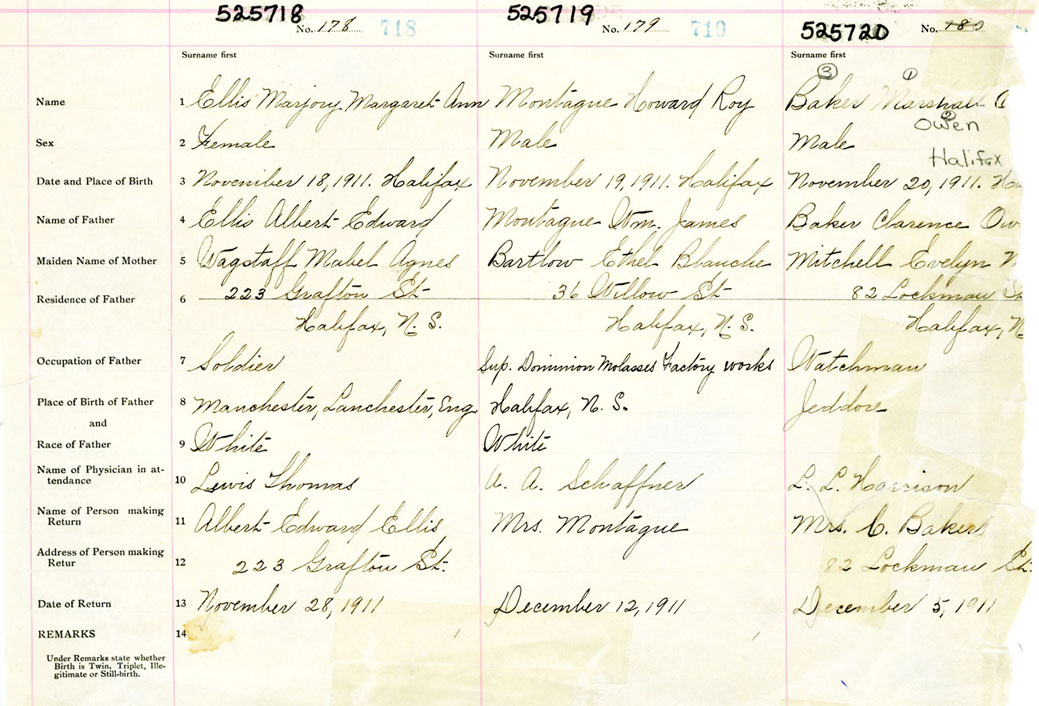 525718 525719 525720
No. 178 718 No. 179 719 No. 180
Surname first Surname first Surname first
3 1
Name 1 Ellis Marjory Margaret Ann Montague Howard Roy Baker Marshall
2
Owen
Sex 2 Female Male Male
Halifax
Date and Place of Birth 3 November 18, 1911. Halifax November 19, 1911. Halifax November 20, 1911. Ha
Name of Father 4 Ellis Albert Edward Montague Wm. James Baker Clarence Ow
Maiden Name of Mother 5 Wagstaff Mabel Agnes Bartlow Ethel Blanche Mitchell Evelyn
Residence of Father 6 223 Grafton St 36 Willow St 82 Lockman St
Halifax, N. S. Halifax, N. S. Halifax, N
Occupation of Father 7 Soldier Sup. Dominion Molasses Factory works Watchman
Place of Birth of Father 8 Manchester, Lanchester, Eng Halifax, N. S. Jeddore
and
Race of Father 9 White White
Name of Physician in at-
tendance 10 Lewis Thomas A. A. Schaffner L. L. Harrison
Name of Person making
Return 11 Albert Edward Ellis Mrs. Montague Mrs. C. Baker
Address of Person making
Retur 12 223 Grafton St. 82 Lockman St.
Date of Return 13 November 28, 1911 December 12, 1911 December 5, 1911
REMARKS 14
Under Remarks state whether
Birth is Twin, Triplet, Ille-
gitimate or Still-birth.